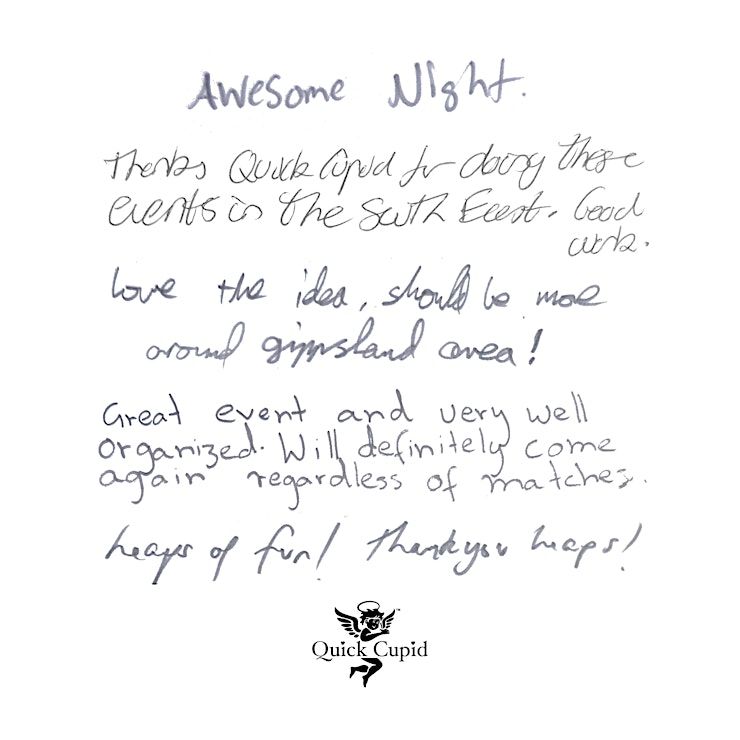 Awesome Night.
Thanks Quick Cupid for doing these
events in the South East. Good
work.
Love the idea, should be more
around gippsland area!
Great event and very well
organized. Will definitely come
again regardless of matches.
heaps of fun! Thankyou heaps!
Quick Cupid
TM